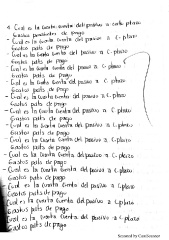 Cual es la cuarta cuenta del pasivo a corto plazo
Gastos pendientes de pago
Cual es la cuarta cuenta del pasivo a c. plazo
Gastos pdts de pago
Cual es la cuarta cuenta del pasivo a c. plazo
Gastos pdts de pago
Cual es la cuarta cuenta del pasivo a c. plazo
Gastos pdts de pago
Cual es la cuarta cuenta del pasivo a c. plazo
Gastos pdts de pago
Cual es la cuarta cuenta del pasivo a c. plazo
Gastos pdts de pago
Cual es la cuarta cuenta del pasivo a c. plazo
Gastos pdts de pago
Cual es la cuarta cuenta del pasivo a c. plazo
Gastos pdts de pago
Cual es la cuarta cuenta del pasivo a c. plazo
Gastos pdts de pago
Cual es la cuarta cuenta del pasivo a c. plazo
Gastos pdts de pago
Cual es la cuarta cuenta del pasivo a c. plazo
Gastos pdts de pago
Cual es la cuarta cuenta del pasivo a c. plazo
Gastos pdts de pago
Cual es la cuarta cuenta del pasivo a c. plazo
Gastos pdts de pago
Scanned by CamScanner